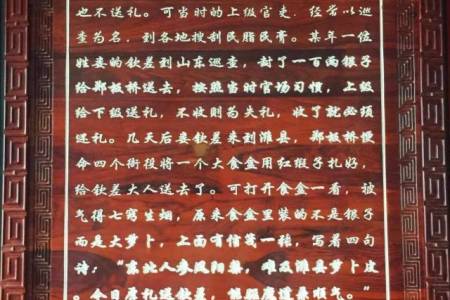 也不送礼。可当时的上级官吏，经常以巡
查为名，到各地搜刮民脂民膏。某年一位
姓娄的钦差到山东巡查，封了一百两银子
给郑板桥送去，按照当时官场习惯，上级
给下级送礼，不收则为失礼，收了就必须
还礼。几天后娄钦差来到潍县，郑板桥便
命四个衙役将一个大食盒用红缎子扎好，
给钦差大人送去了。可打开食盒一看，被
气得七窍生烟，原来食盒里装的不是银子
而是大萝卜，上面有信笺一张，写着四句
诗：“东北人参凤阳梨，难及潍县萝卜皮
。今日厚礼送钦差，能驱魔道兼顺气。”